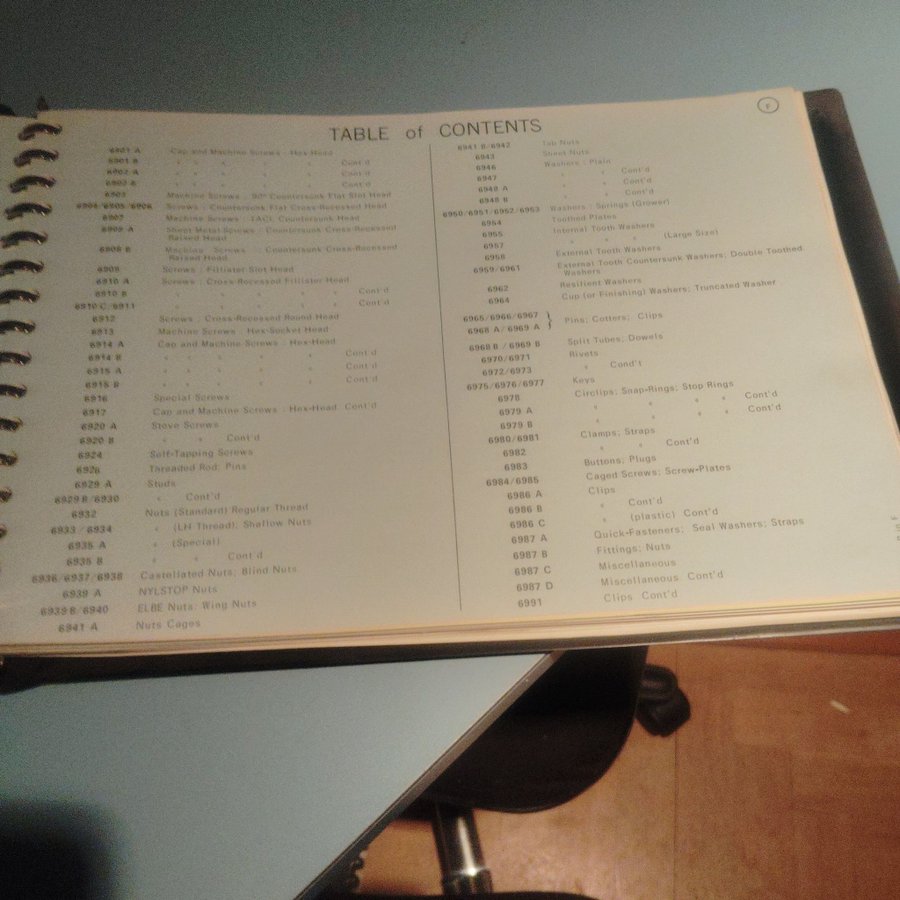 F
TABLE of CONTENTS
6901 A Cap and Machine Screws : Hex-Head
6901 B " " " " " Cont'd
6902 A " " " " " Cont'd
6902 B " " " " " Cont'd
6903 Machine Screws : 90° Countersunk Flat Slot Head
6904/6905/6906 Screws : Countersunk Flat Cross-Recessed Head
6907 Machine Screws : TACL Countersunk Head
6908 A Sheet Metal Screws : Countersunk Cross-Recessed
Raised Head
6908 B Machine Screws : Countersunk Cross-Recessed
Raised Head
6909 Screws : Fillister Slot Head
6910 A Screws : Cross-Recessed Fillister Head
6910 B " " " " Cont'd
6910 C/6911 " " " " Cont'd
6912 Screws : Cross-Recessed Round Head
6913 Machine Screws : Hex-Socket Head
6914 A Cap and Machine Screws : Hex-Head
6914 B " " " " " Cont'd
6915 A " " " " " Cont'd
6915 B " " " " " Cont'd
6916 Special Screws
6917 Cap and Machine Screws : Hex-Head Cont'd
6920 A Stove Screws
6920 B " " Cont'd
6924 Self-Tapping Screws
6928 Threaded Rod; Pins
6929 A Studs
6929 B/6930 " Cont'd
6932 Nuts (Standard) Regular Thread
6933/6934 " (LH Thread); Shallow Nuts
6935 A " (Special)
6935 B " " Cont'd
6936/6937/6938 Castellated Nuts; Blind Nuts
6939 A NYLSTOP Nuts
6939 B/6940 ELBE Nuts; Wing Nuts
6941 A Nuts Cages
6941 B/6942 Tab Nuts
6943 Sheet Nuts
6946 Washers : Plain
6947 " " Cont'd
6948 A " " Cont'd
6948 B " " Cont'd
6950/6951/6952/6953 Washers : Springs (Grower)
6954 Toothed Plates
6955 Internal Tooth Washers
6957 " " " (Large Size)
6958 External Tooth Washers
6959/6961 External Tooth Countersunk Washers; Double Toothed
Washers
6962 Resilient Washers
6964 Cup (or Finishing) Washers; Truncated Washer
6965/6966/6967 }
6968 A/6969 A } Pins; Cotters; Clips
6968 B/6969 B Split Tubes; Dowels
6970/6971 Rivets
6972/6973 " Cond't
6975/6976/6977 Keys
6978 Circlips; Snap-Rings; Stop Rings
6979 A " " " " Cont'd
6979 B " " " " Cont'd
6980/6981 Clamps; Straps
6982 " " Cont'd
6983 Buttons; Plugs
6984/6985 Caged Screws; Screw-Plates
6986 A Clips
6986 B " Cont'd
6986 C " (plastic) Cont'd
6987 A Quick-Fasteners; Seal Washers; Straps
6987 B Fittings; Nuts
6987 C Miscellaneous
6987 D Miscellaneous Cont'd
6991 Clips Cont'd